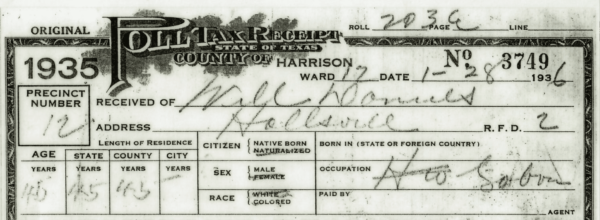 ORIGINAL
POLL TAX RECEIPT
STATE OF TEXAS
COUNTY OF HARRISON
ROLL 203 PAGE LINE
1935
WARD 12 DATE 1-28 1936
No 3749
PRECINCT NUMBER
12
RECEIVED OF Will Daniels
ADDRESS Hallsvill R.F.D. 2
LENGTH OF RESIDENCE
AGE STATE COUNTY CITY
YEARS YEARS YEARS YEARS
45 45 45
CITIZEN NATIVE BORN NATURALIZED
SEX MALE FEMALE
RACE WHITE COLORED
BORN IN (STATE OR FOREIGN COUNTRY)
OCCUPATION
PAID BY
AGENT